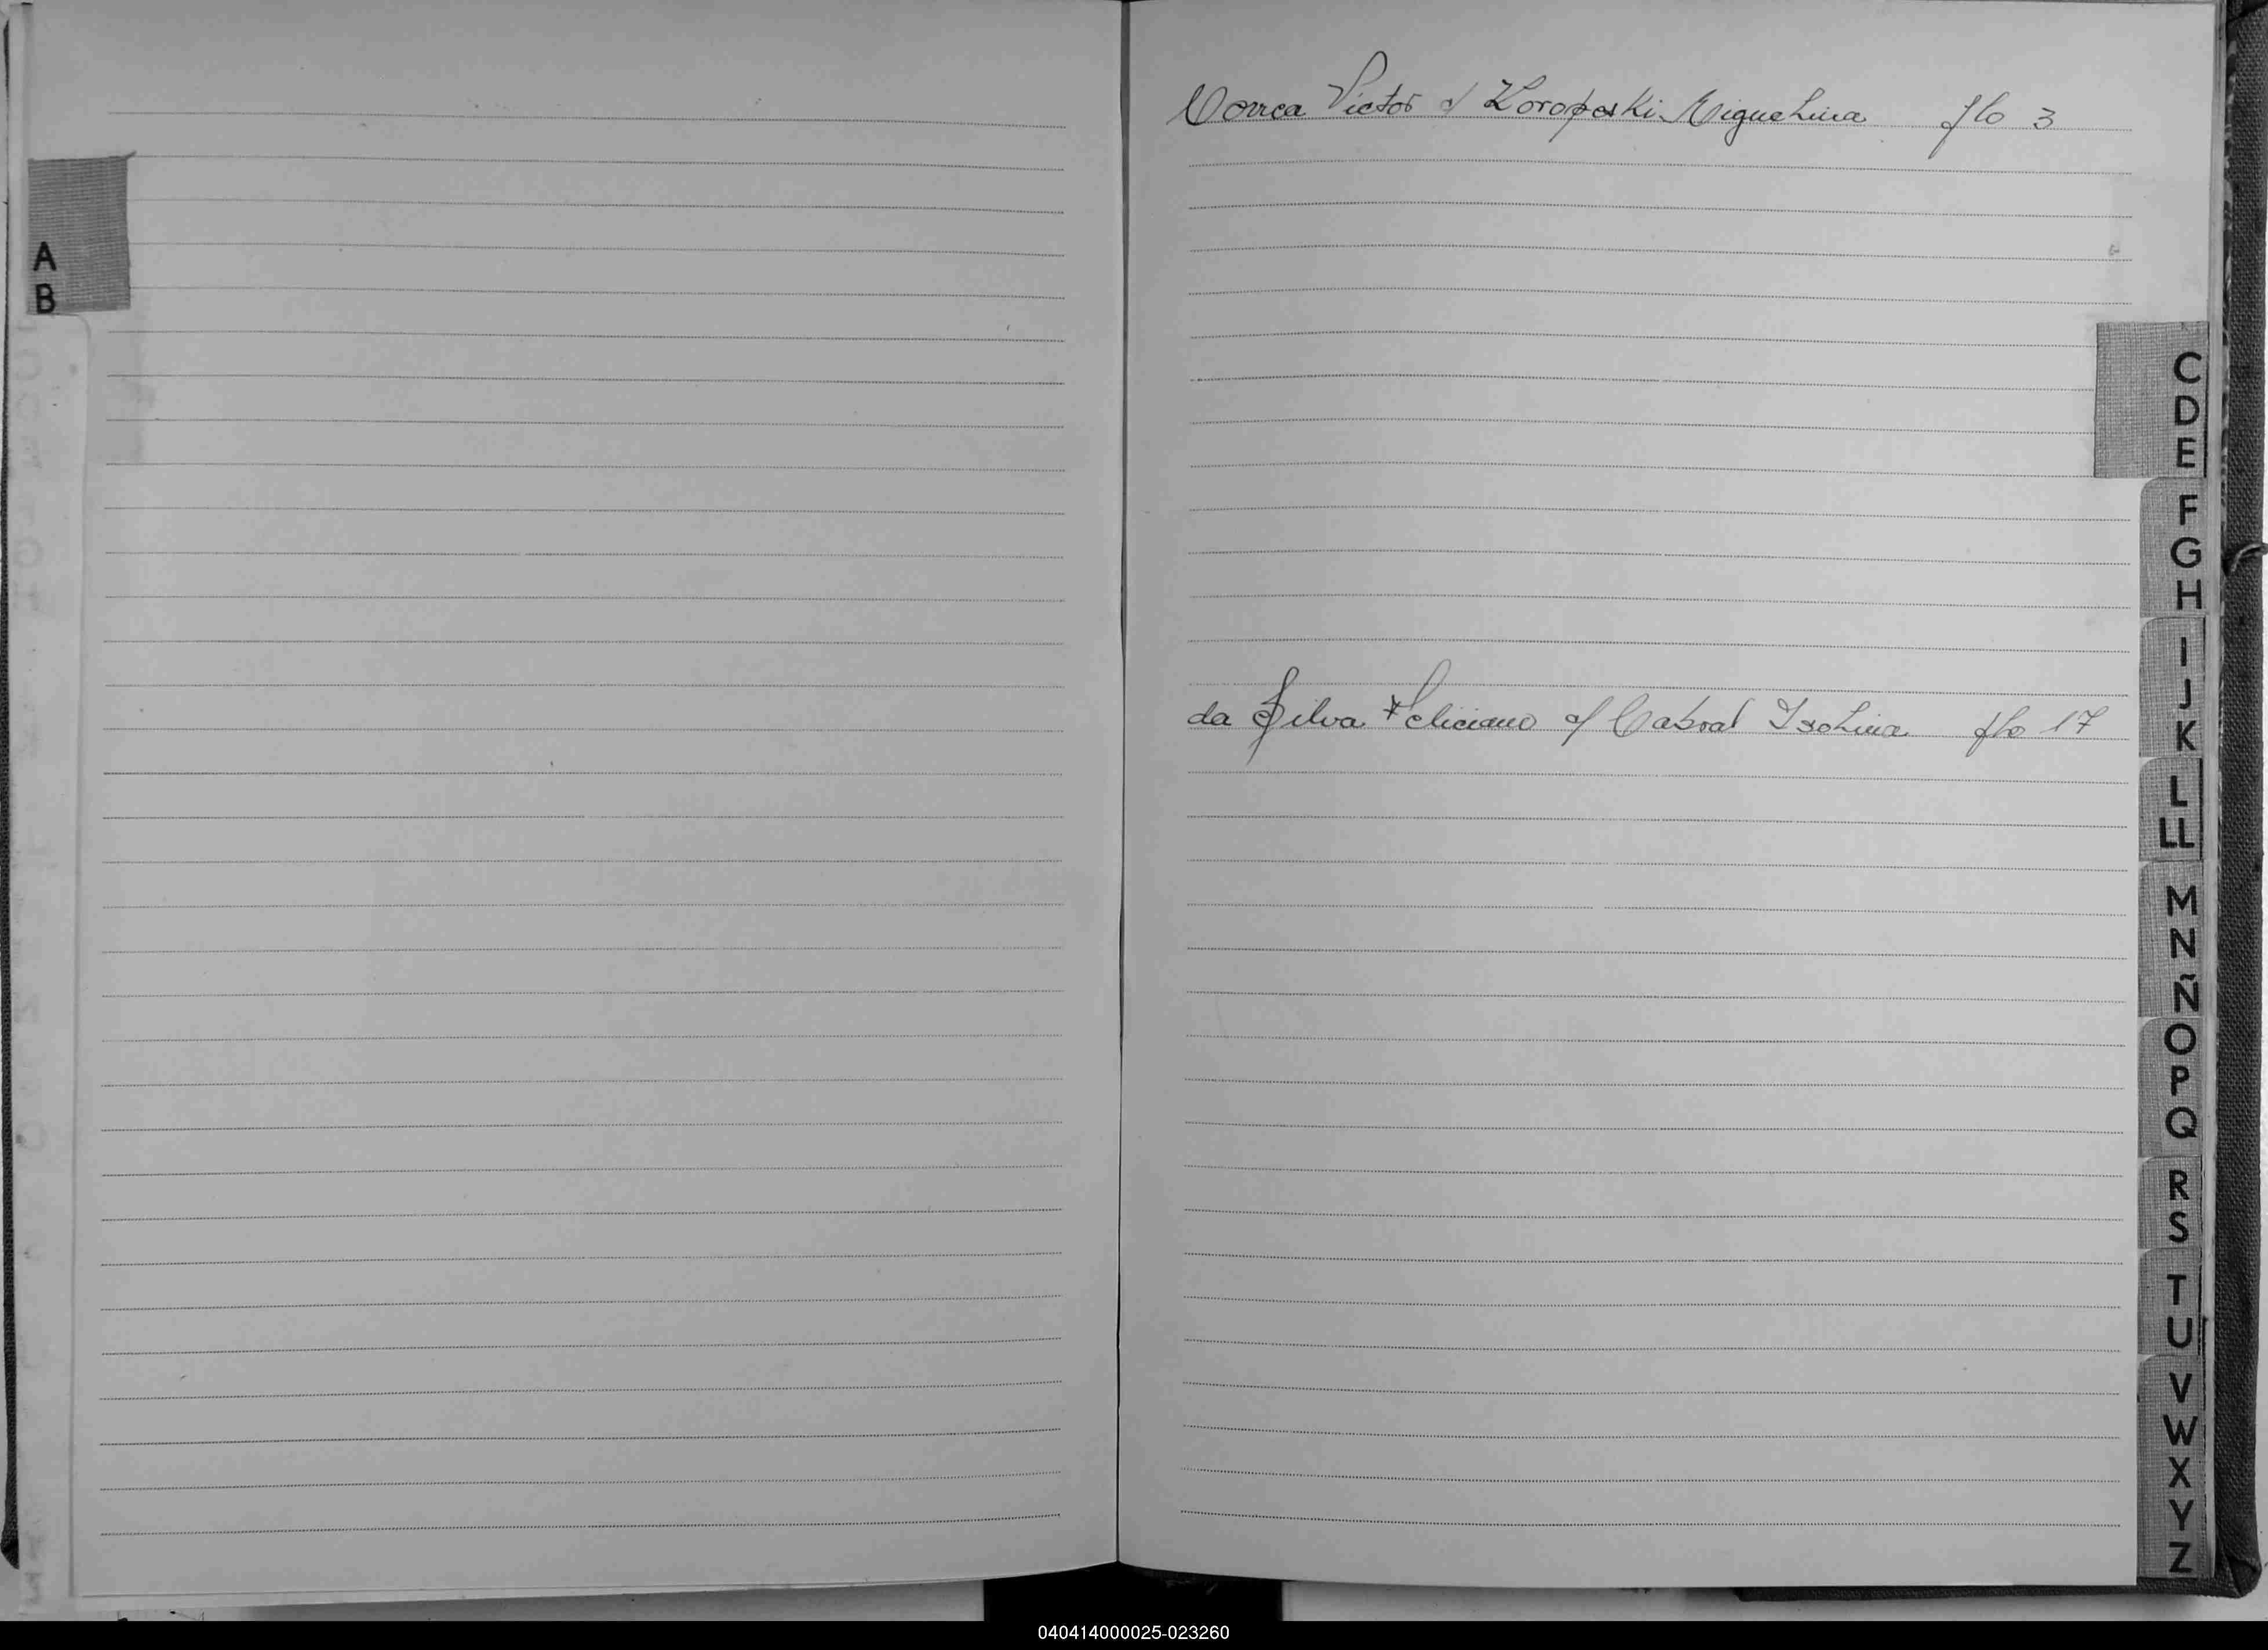 A
B
Correa Victor c/ Koropeski Miguelina flo 3
da Silva Feliciano c/ Cabral Isolina flo 17
C
D
E
F
G
H
I
J
K
L
LL
M
N
Ñ
O
P
Q
R
S
T
U
V
W
X
Y
Z
040414000025-023260